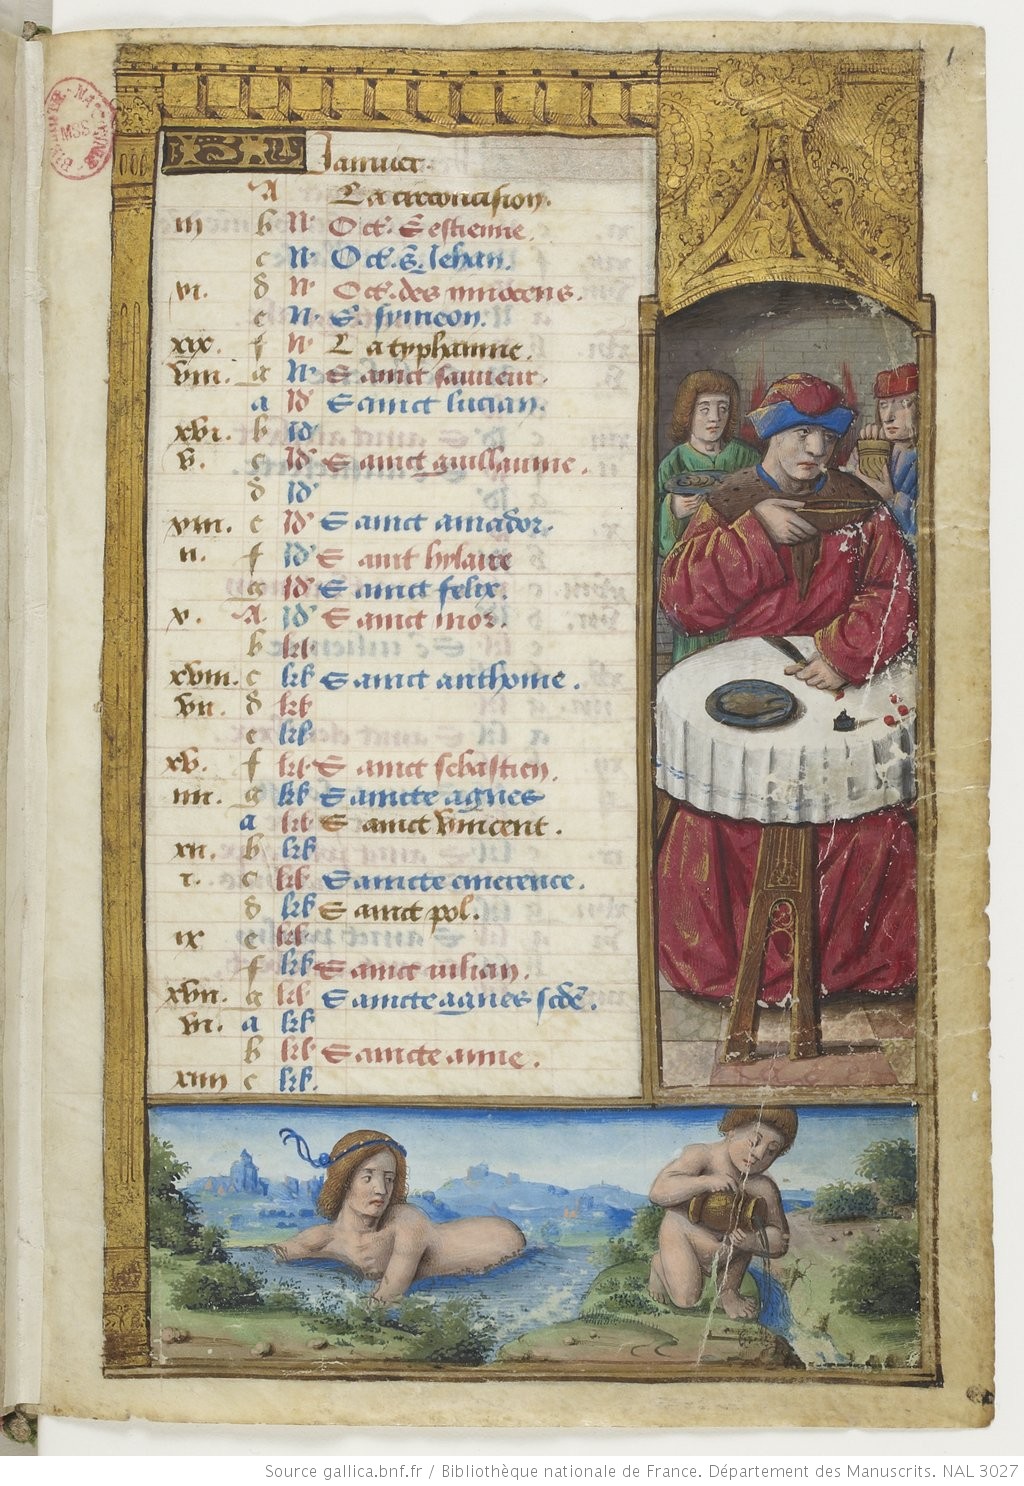 1
Januier.
A La circoncision.
iii b N. Oct. S. estienne.
c N. Oct. s. Iehan.
vi. d N. Oct. des innocens.
e N. S. symeon.
xix. f N. La typhainne.
viii. g N. Sainct sauueur.
a Id Sainct lucian.
xvi. b Id
v. c Id Sainct guillaume.
d Id
xiii. e Id Sainct amador.
ii. f Id Saint hylaire
g Id Sainct felix.
x. A Id Sainct mor.
b kl
xviii. c kl Sainct anthoine.
vii. d kl
e kl
xv. f kl Sainct sebastien.
iiii. g kl Saincte agnes
a kl Sainct vincent.
xii. b kl
i. c kl Saincte emerence.
d kl Sainct pol.
ix e kl
f kl Sainct iulian.
xvii. g kl Saincte agnes scde.
vi. a kl
b kl Saincte anne.
xiiii c kl.
Source gallica.bnf.fr / Bibliothèque nationale de France. Département des Manuscrits. NAL 3027